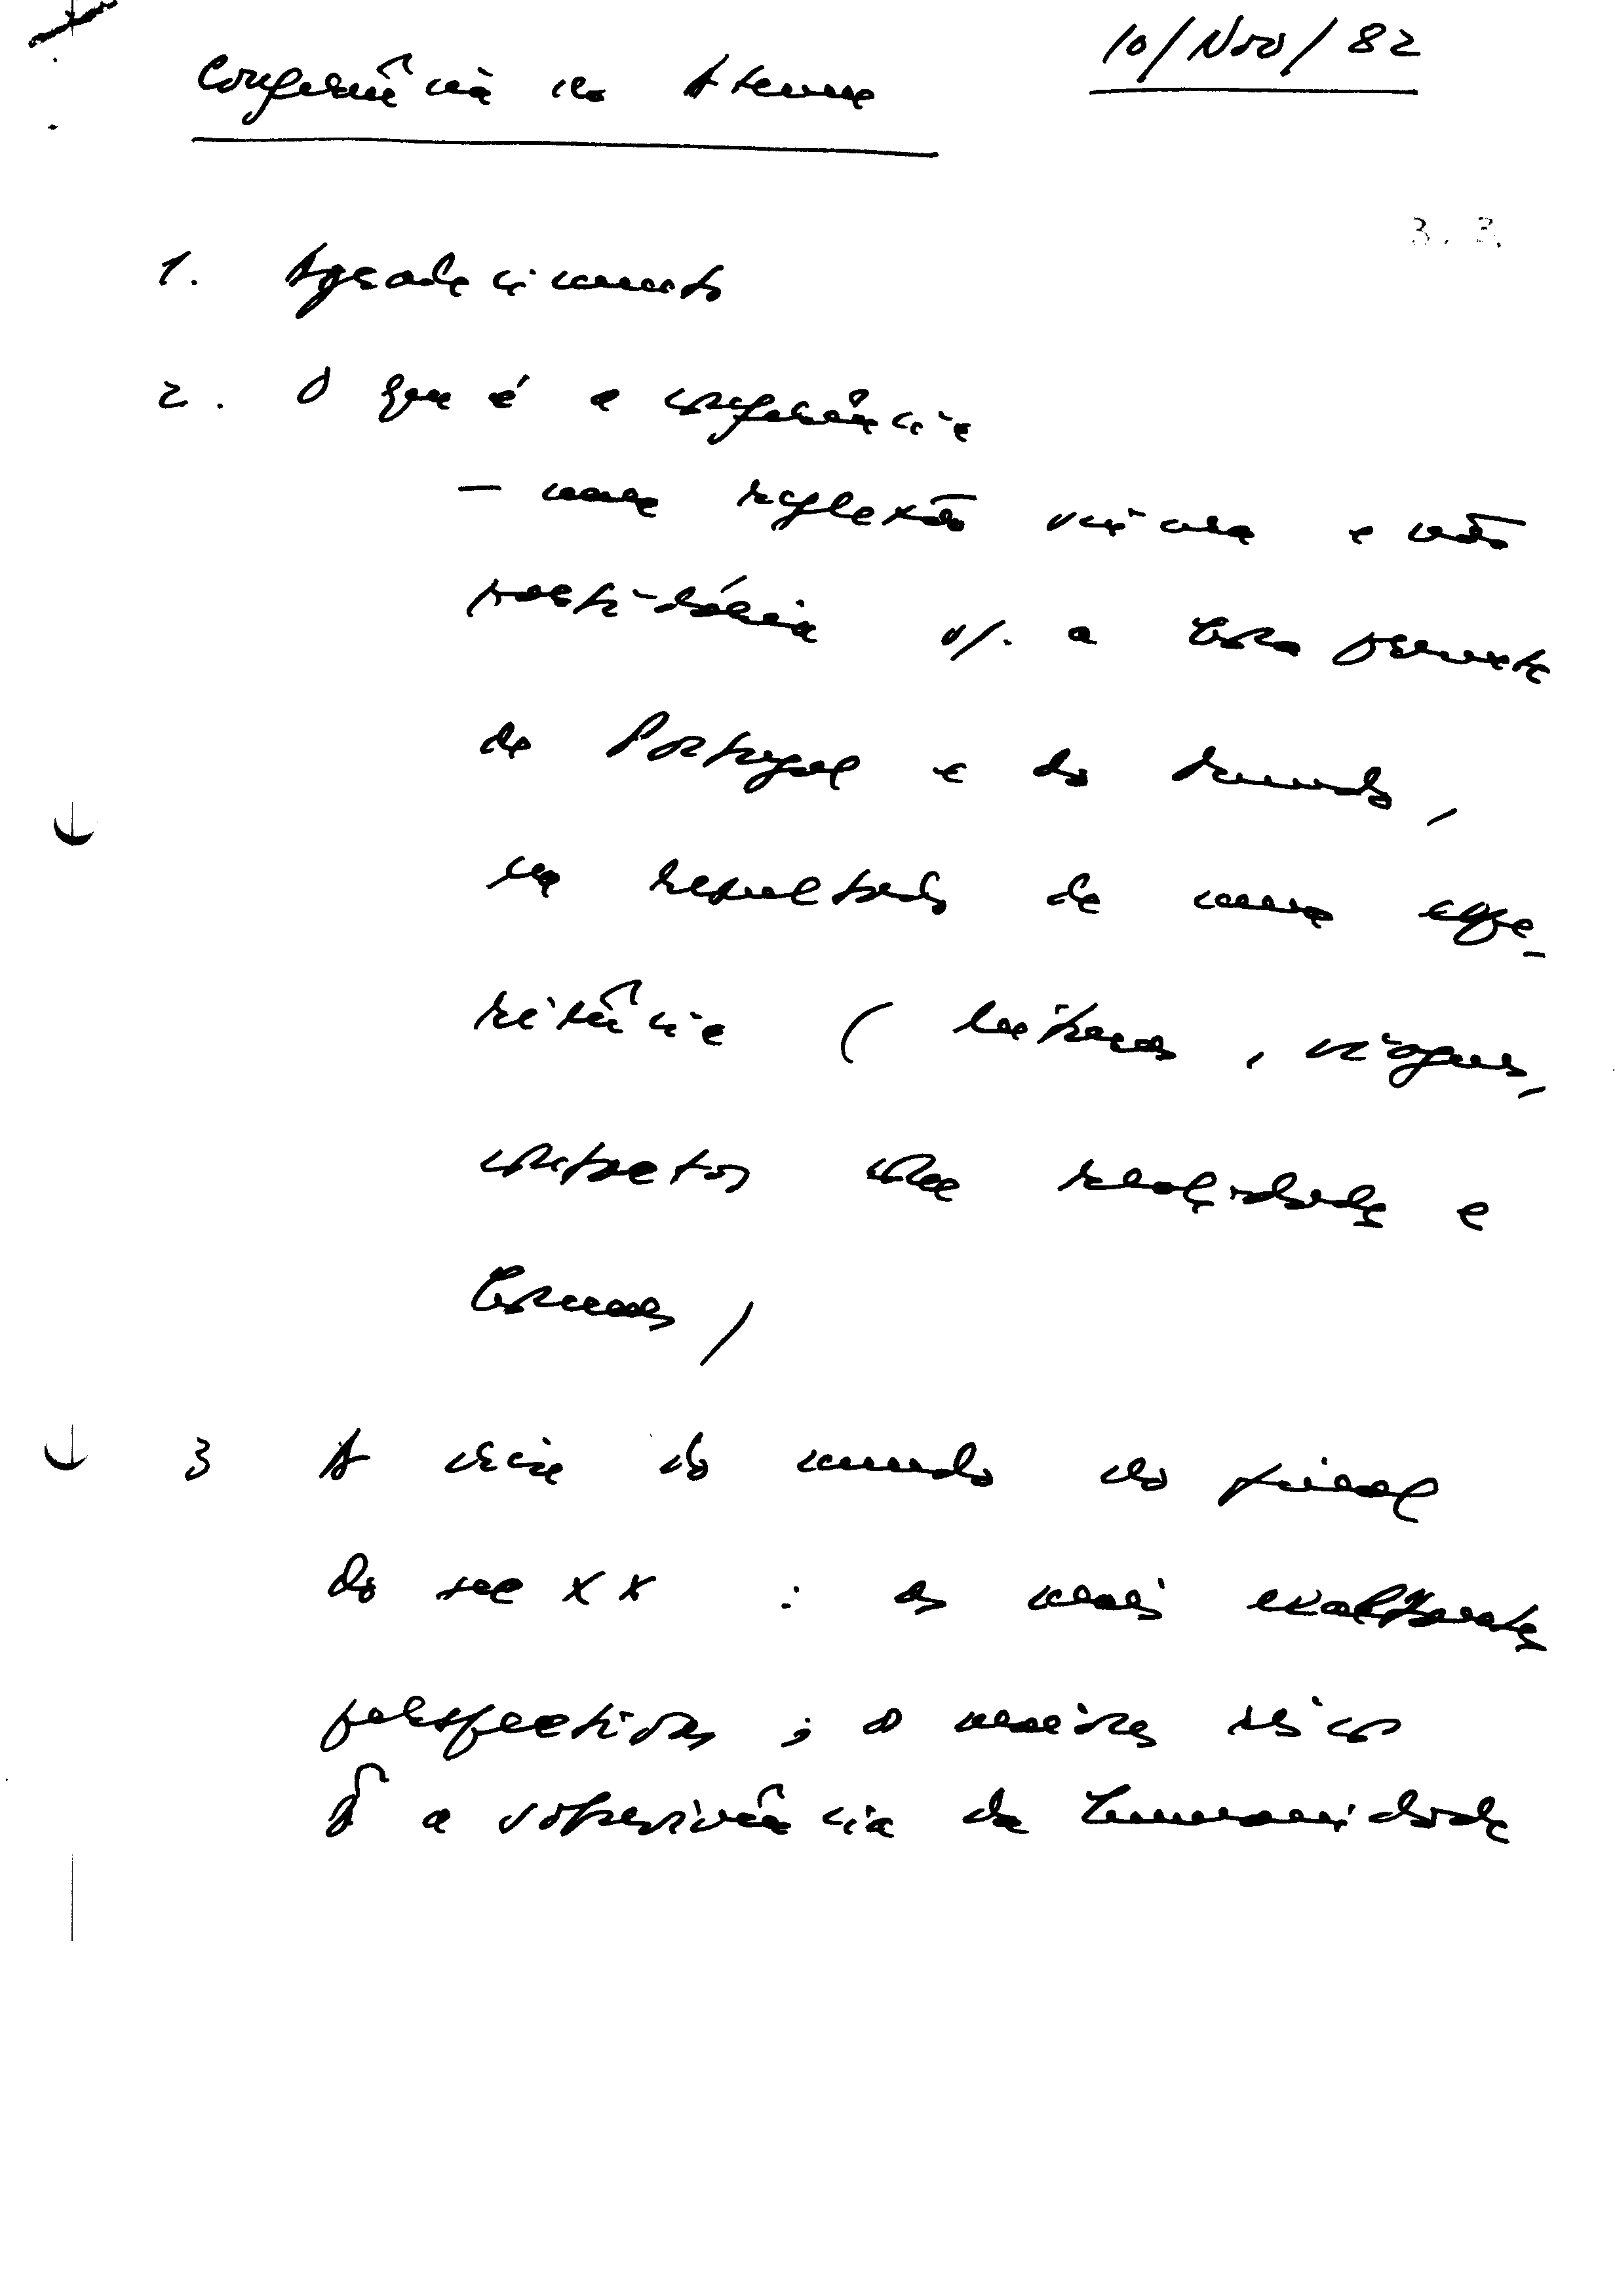 Conferência no Ateneu
10/Nov/82
3.3.
1. Agradecimento
2. O que é a conferência
— uma reflexão cívica e não
partidária s/. a hora presente
de Portugal e do Mundo,
em resultado de uma expe-
riência (leituras, viagens,
contactos com realidades e
homens)
3 A crise do mundo no final
do sec XX : as mais exaltantes
perspectivas ; o maior risco
p/ a sobrevivência da humanidade